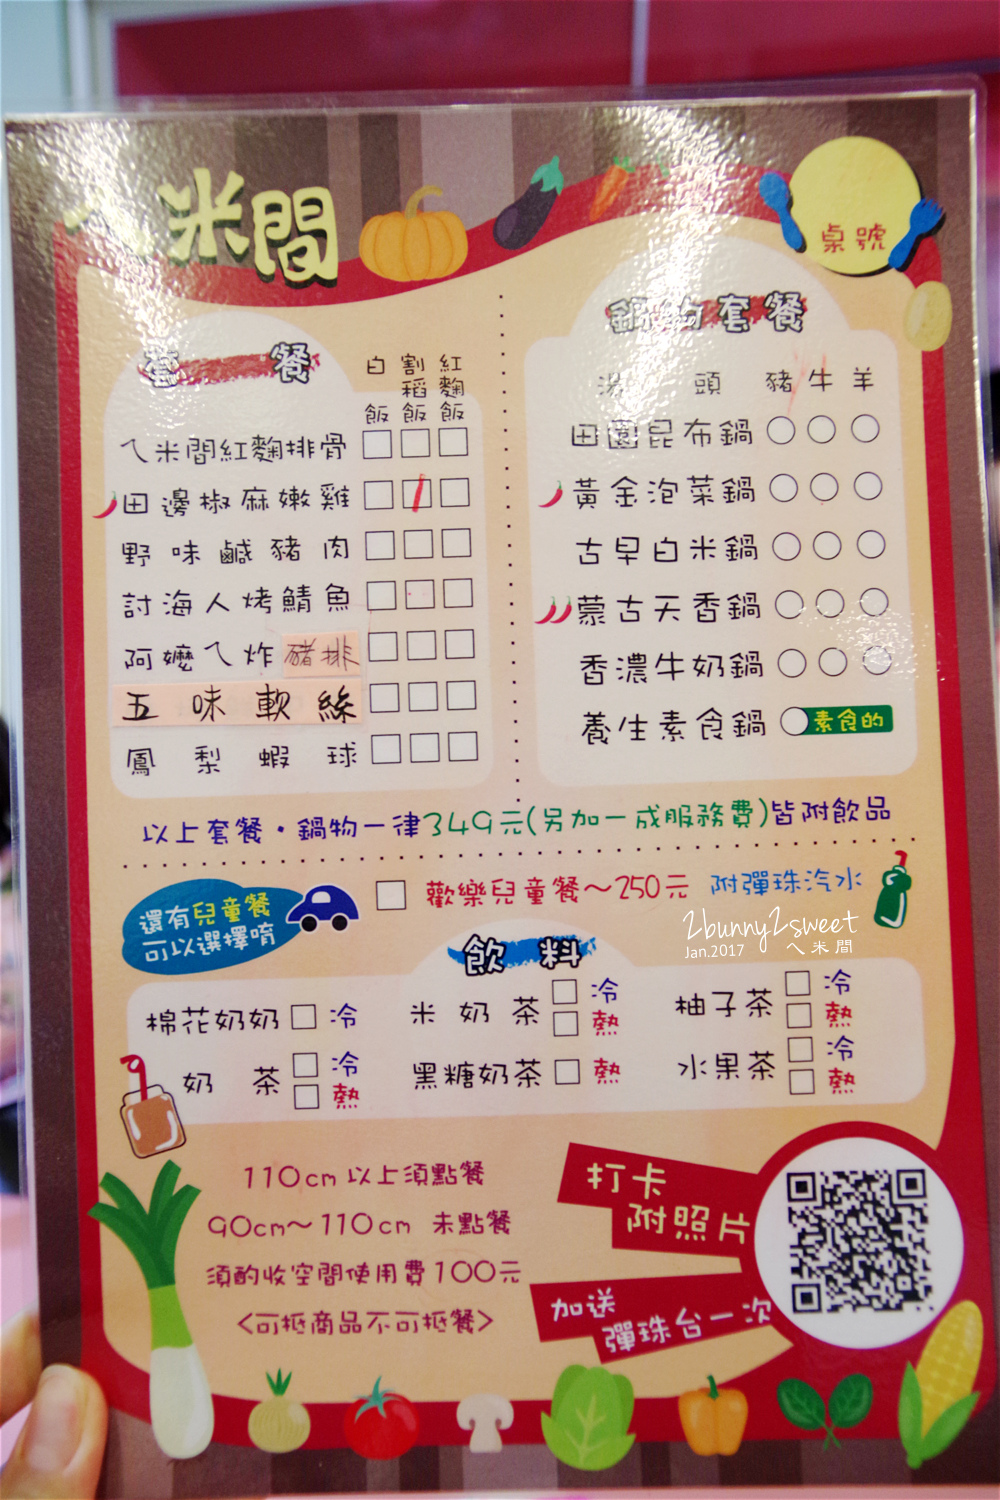 ㄟ米間
桌號
套餐
白飯 割稻飯 紅麴飯
ㄟ米間紅麴排骨
田邊椒麻嫩雞
野味鹹豬肉
討海人烤鯖魚
阿嬤ㄟ炸豬排
五味軟絲
鳳梨蝦球
鍋物套餐
湯頭 豬 牛 羊
田園昆布鍋
黃金泡菜鍋
古早白米鍋
蒙古天香鍋
香濃牛奶鍋
養生素食鍋 素食的
以上套餐・鍋物一律349元(另加一成服務費)皆附飲品
還有兒童餐
可以選擇唷
歡樂兒童餐～250元 附彈珠汽水
2bunny2sweet
Jan.2017 ㄟ米間
飲料
棉花奶奶 冷
米奶茶 冷 熱
柚子茶 冷 熱
奶茶 冷 熱
黑糖奶茶 熱
水果茶 冷 熱
110cm 以上須點餐
90cm～110cm 未點餐
須酌收空間使用費100元
<可抵商品不可抵餐>
打卡
附照片
加送
彈珠台一次